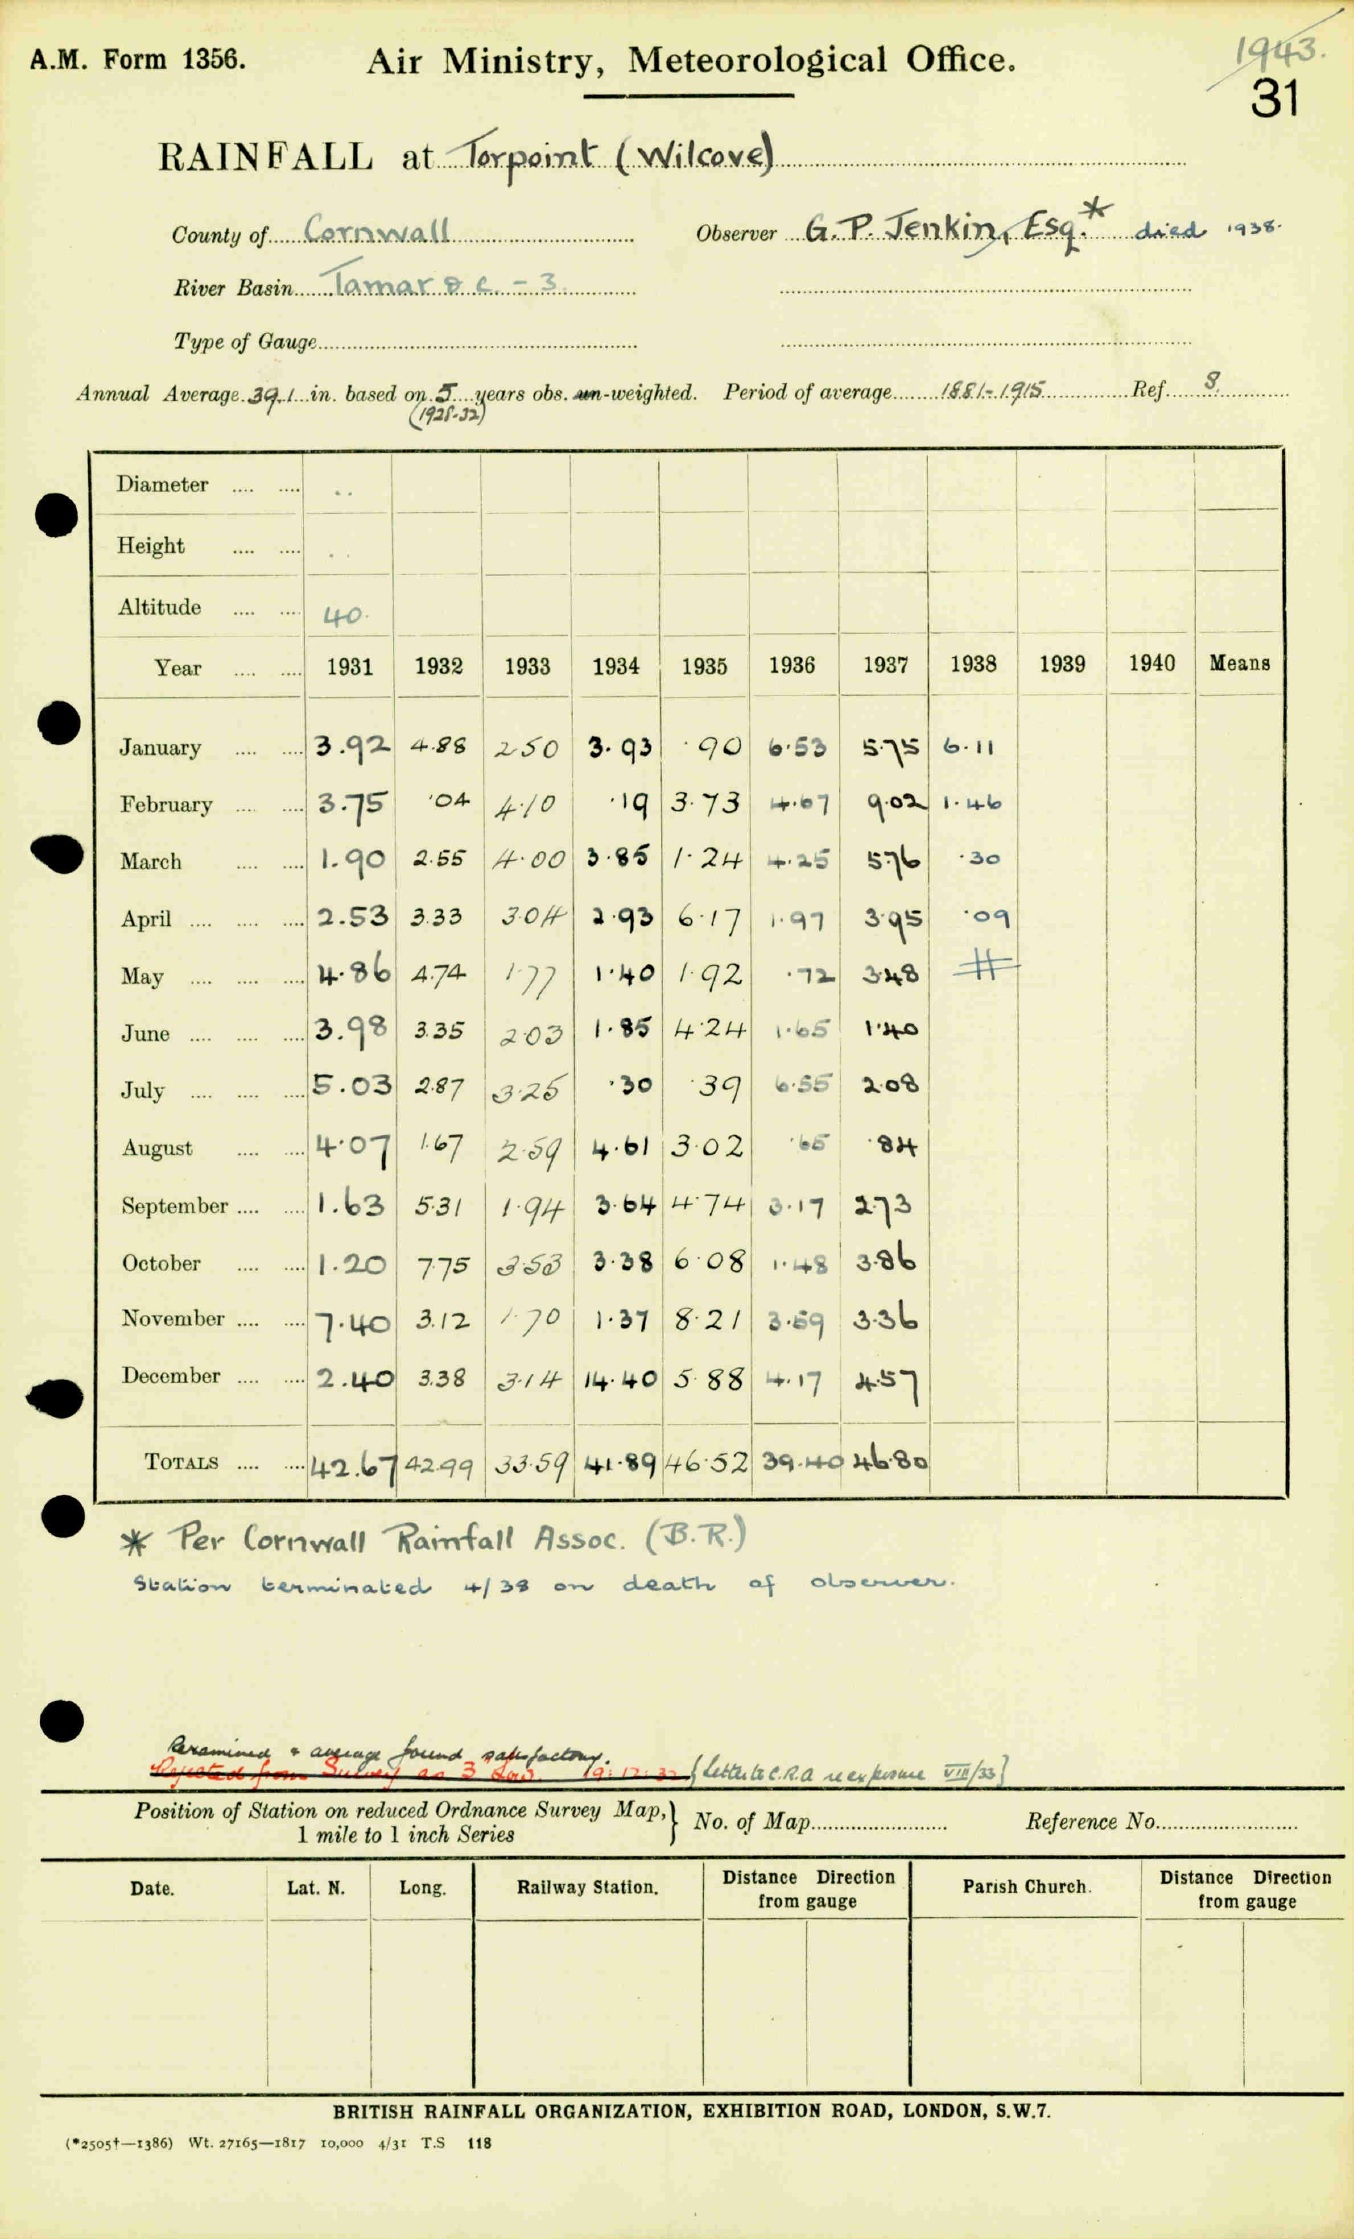 A.M. Form 1356. Air Ministry, Meteorological Office. 1943.
31
RAINFALL at Torpoint (Wilcove)
County of Cornwall Observer G. P. Jenkin, Esq.* died 1938.
River Basin Tamar & c. - 3
Type of Gauge
Annual Average 39.1 in. based on 5 years obs. un-weighted. Period of average 1881-1915 Ref. 8.
(1928-32)
Diameter .... .... ..
Height .... .... ..
Altitude .... .... 40.
Year .... .... 1931 1932 1933 1934 1935 1936 1937 1938 1939 1940 Means
January .... .... 3.92 4.88 2.50 3.93 .90 6.53 5.75 6.11
February .... .... 3.75 .04 4.10 .19 3.73 4.67 9.02 1.46
March .... .... 1.90 2.55 4.00 3.85 1.24 4.25 5.76 .30
April .... .... .... 2.53 3.33 3.04 2.93 6.17 1.97 3.95 .09
May .... .... .... 4.86 4.74 1.77 1.40 1.92 .72 3.48 #
June .... .... .... 3.98 3.35 2.03 1.85 4.24 1.65 1.40
July .... .... .... 5.03 2.87 3.25 .30 .39 6.55 2.08
August .... .... 4.07 1.67 2.59 4.61 3.02 .65 .84
September .... .... 1.63 5.31 1.94 3.64 4.74 3.17 2.73
October .... .... 1.20 7.75 3.53 3.38 6.08 1.48 3.86
November .... .... 7.40 3.12 1.70 1.37 8.21 3.59 3.36
December .... .... 2.40 3.38 3.14 14.40 5.88 4.17 4.57
TOTALS .... .... 42.67 42.99 33.59 41.89 46.52 39.40 46.80
* Per Cornwall Rainfall Assoc. (B.R.)
Station terminated 4/38 on death of observer.
Reexamined & average found satisfactory.
Rejected from Survey as 3" Low. 19.12.32 {Letter to C.R.A re exposure VIII/33}
Position of Station on reduced Ordnance Survey Map,} No. of Map Reference No.
1 mile to 1 inch Series
Date. Lat. N. Long. Railway Station. Distance Direction from gauge Parish Church. Distance Direction from gauge
BRITISH RAINFALL ORGANIZATION, EXHIBITION ROAD, LONDON, S.W.7.
(*2505†—1386) Wt. 27165—1817 10,000 4/31 T.S 118